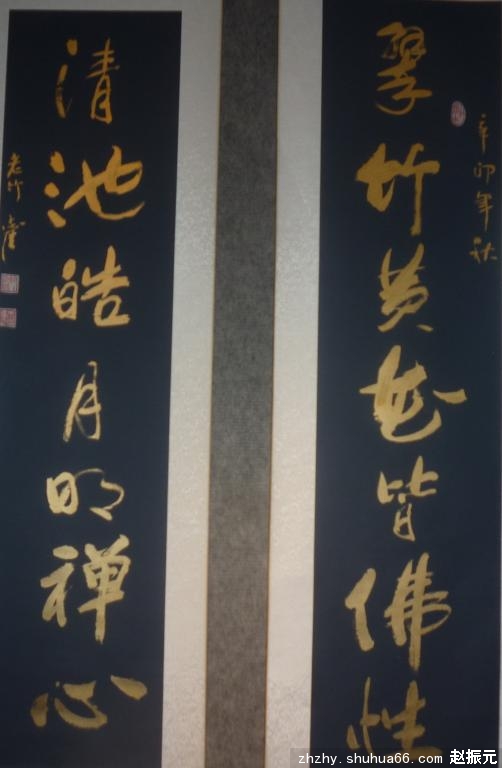 翠竹黄花皆佛性
辛卯年秋
清池皓月明禅心
老竹
zhzhy.shuhua66.com 赵振元